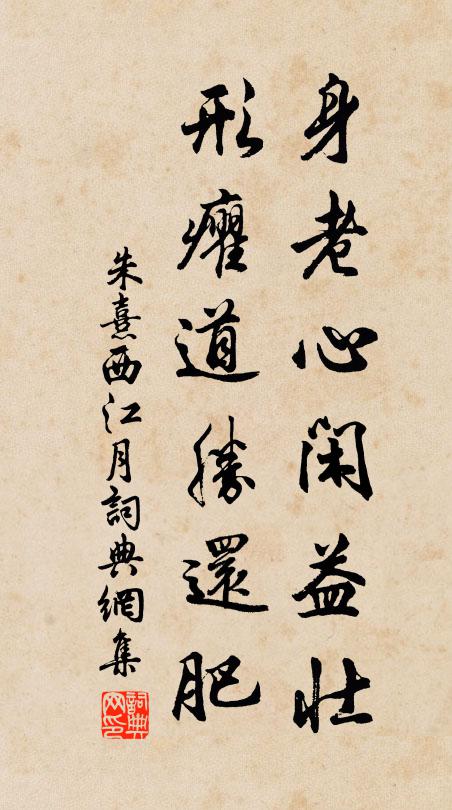 身老心閑益壯
形癯道勝還肥
朱熹西江月詞典網集
詞典网印